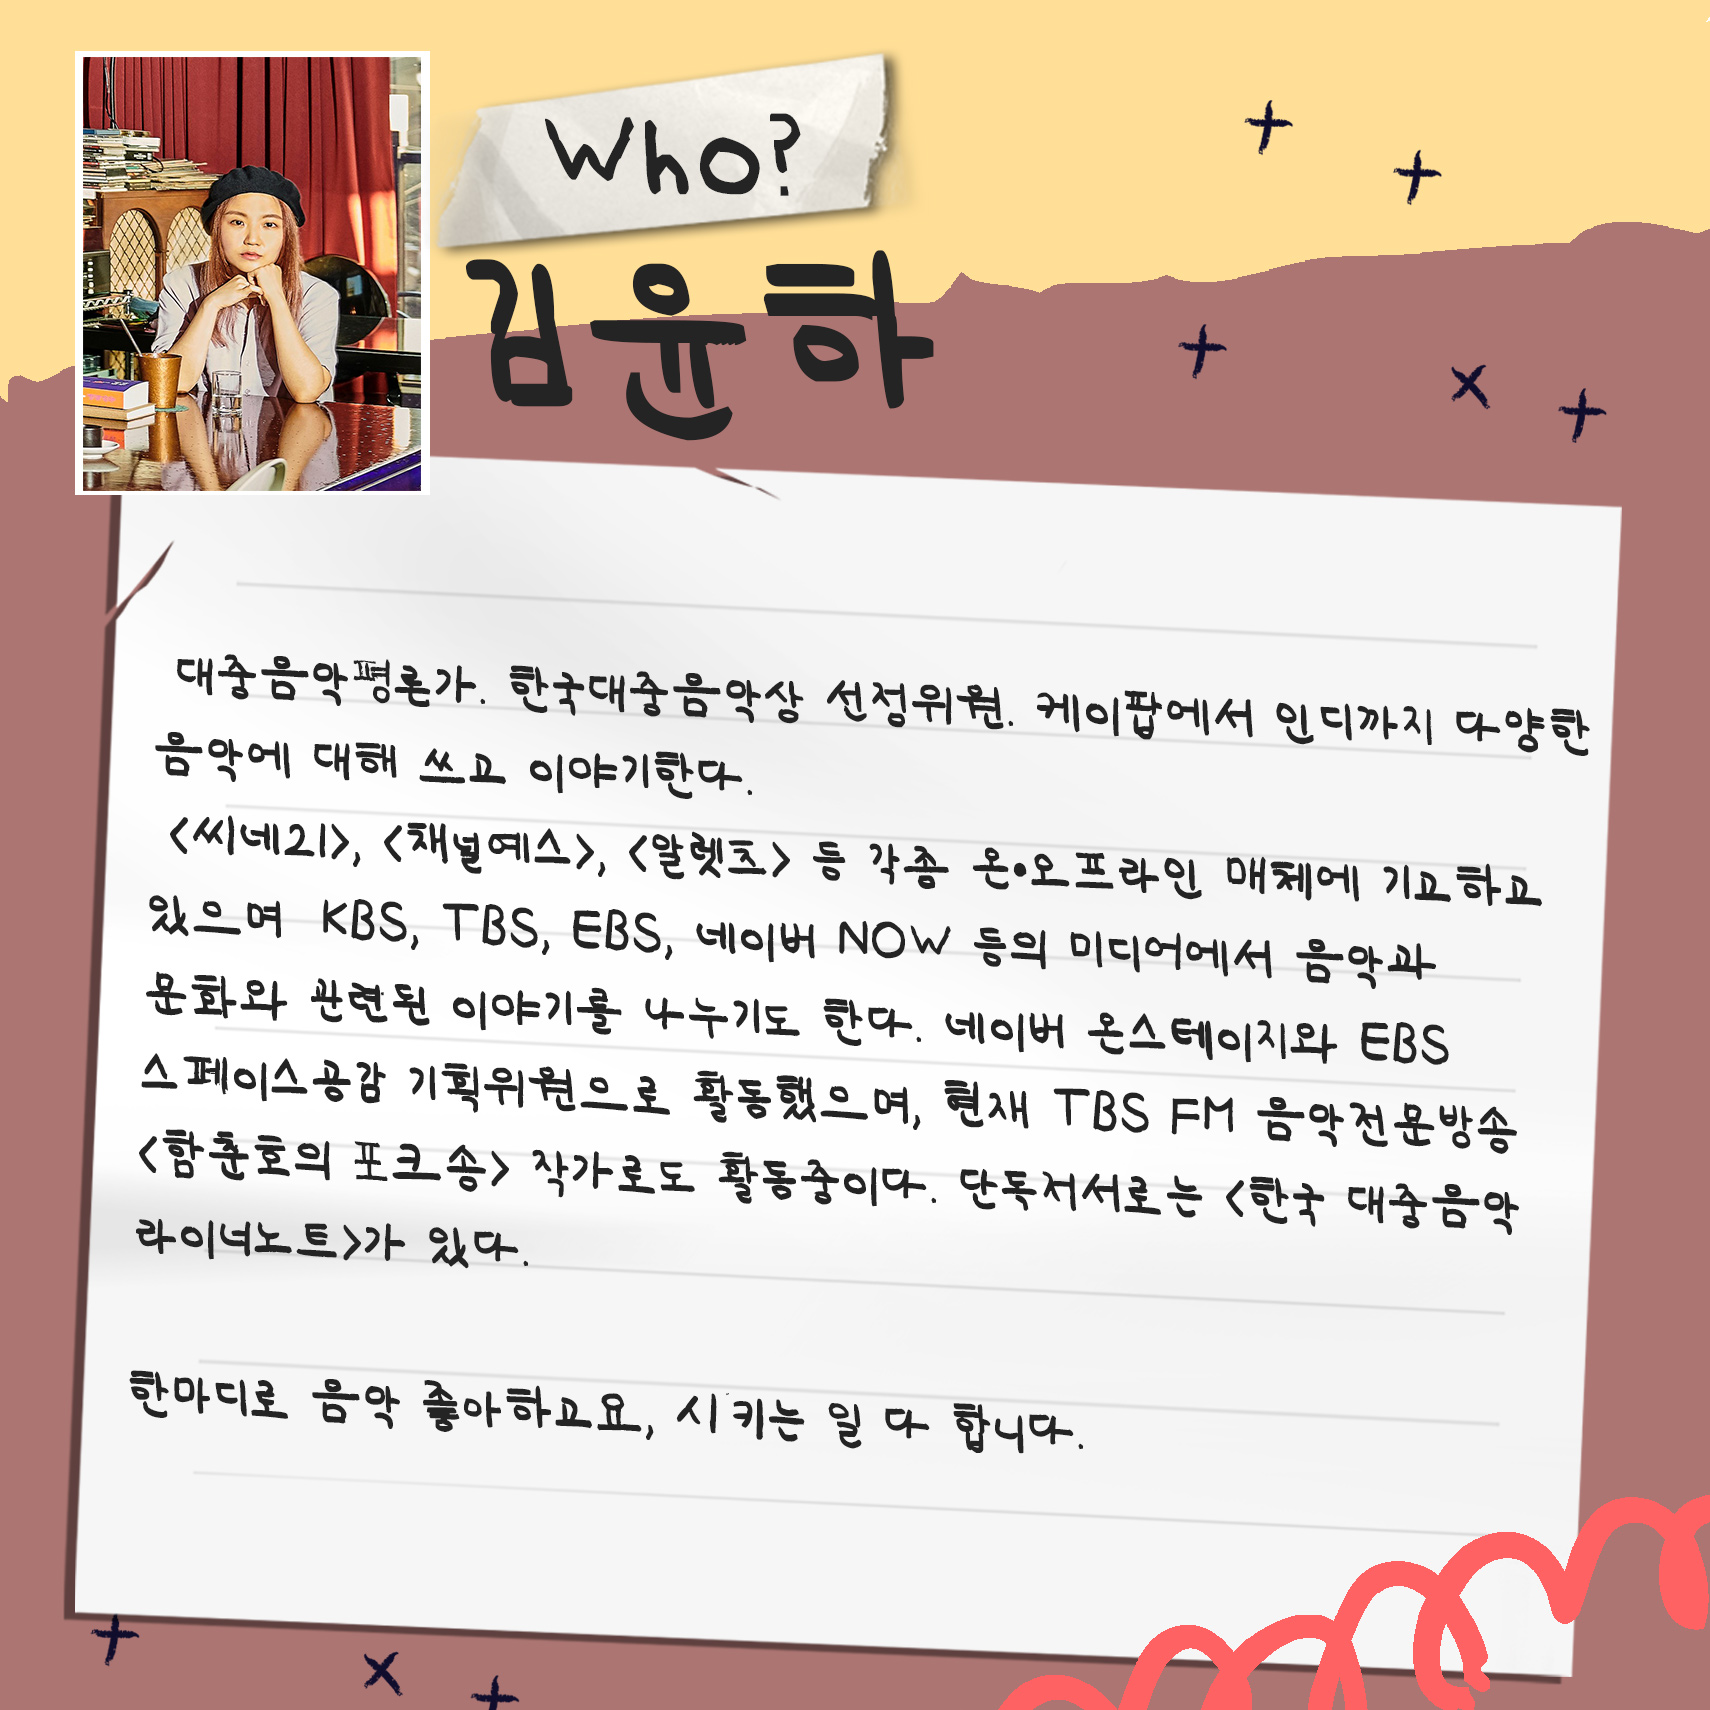 Who?
김윤하
대중음악평론가. 한국대중음악상 선정위원. 케이팝에서 인디까지 다양한
음악에 대해 쓰고 이야기한다.
<씨네21>, <채널예스>, <알렛츠> 등 각종 온•오프라인 매체에 기고하고
있으며 KBS, TBS, EBS, 네이버 NOW 등의 미디어에서 음악과
문화와 관련된 이야기를 나누기도 한다. 네이버 온스테이지와 EBS
스페이스공감 기획위원으로 활동했으며, 현재 TBS FM 음악전문방송
<함춘호의 포크송> 작가로도 활동중이다. 단독저서로는 <한국 대중음악
라이너노트>가 있다.
한마디로 음악 좋아하고요, 시키는 일 다 합니다.